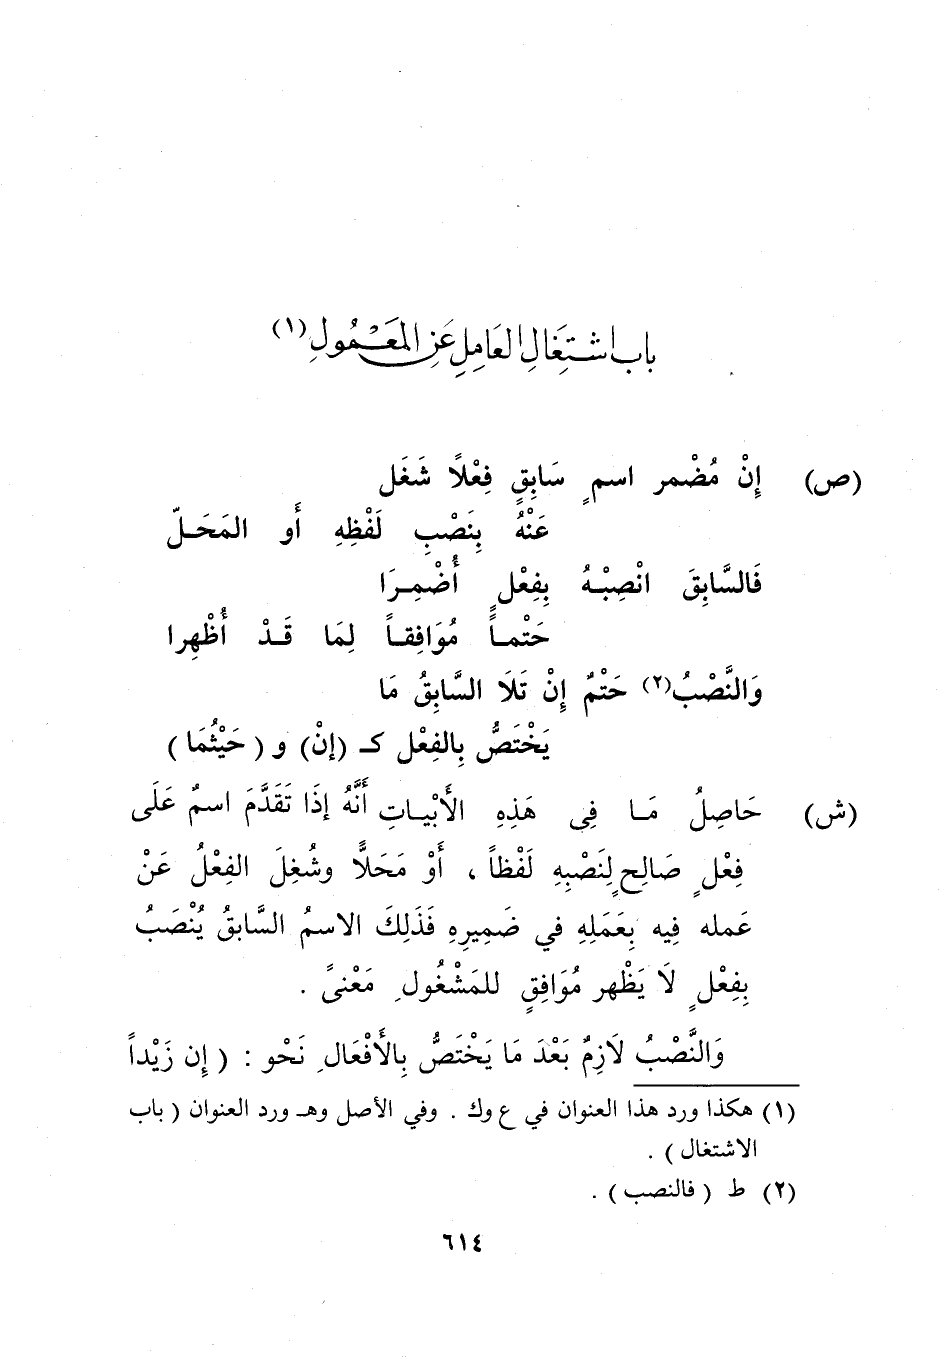 باب اشتِغَالِ العَامِلِ عَنِ المَعْمُولِ (١)
(ص) إِنْ مُضْمر اسمٍ سَابِقٍ فِعْلاً شَغَل
عَنْهُ بِنَصْبِ لَفْظِهِ أَو المَحَلّ
فَالسَّابِقَ انْصِبْهُ بِفِعْلٍ أُضْمِرَا
حَتْماً مُوَافِقاً لِمَا قَدْ أُظْهِرا
وَالنَّصْبُ(٢) حَتْمٌ إِنْ تَلَا السَّابِقُ مَا
يَخْتَصُّ بِالفِعْلِ كـ (إنْ) و (حَيْثُمَا)
(ش) حَاصِلُ مَا فِى هَذِهِ الأَبْيَاتِ أَنَّهُ إذَا تَقَدَّمَ اسمٌ عَلَى
فِعْلٍ صَالِحٍ لِنَصْبِهِ لَفْظاً ، أَوْ مَحَلًّا وشُغِلَ الفِعْلُ عَنْ
عَمله فِيه بِعَمَلِهِ في ضَمِيرِهِ فَذَلِكَ الاسمُ السَّابقُ يُنْصَبُ
بِفِعْلٍ لَا يَظْهر مُوَافِقٍ للمَشْغُولِ مَعْنىً .
وَالنَّصْبُ لَازِمٌ بَعْدَ مَا يَخْتَصُّ بِالأَفْعَالِ نَحْو : ( إِن زَيْداً
(١) هكذا ورد هذا العنوان في ع وك . وفي الأصل وهـ ورد العنوان ( باب
الاشتغال ) .
(٢) ط ( فالنصب ) .
٦١٤